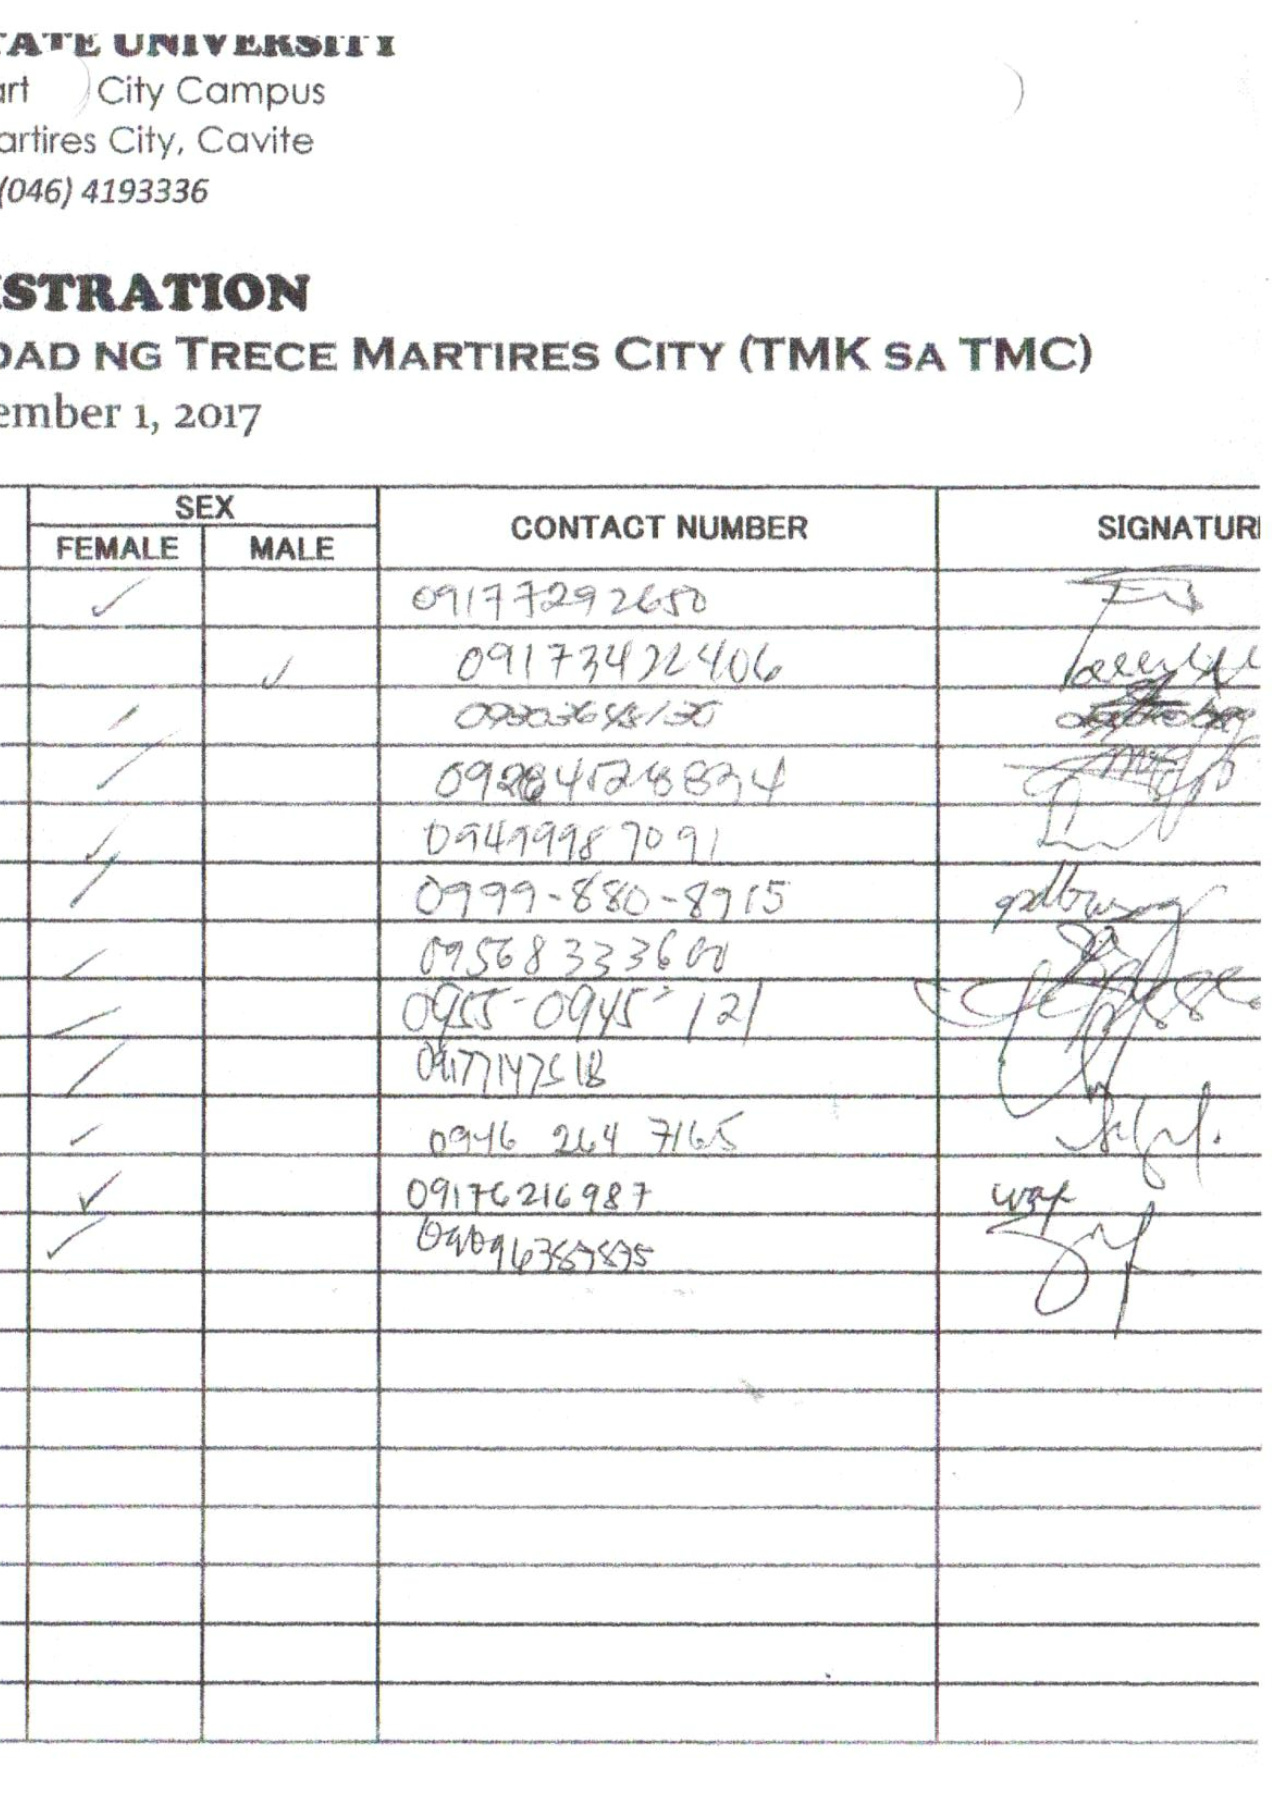 TATE UNIVERSITY
art City Campus
artires City, Cavite
(046) 4193336
ISTRATION
DAD NG TRECE MARTIRES CITY (TMK SA TMC)
ember 1, 2017
SEX
CONTACT NUMBER
SIGNATUR
FEMALE MALE
09177292650
09173422406
09499987091
0999-880-8915
09568333600
0955-0945-121
09177147518
0946 264 7165
09176216987